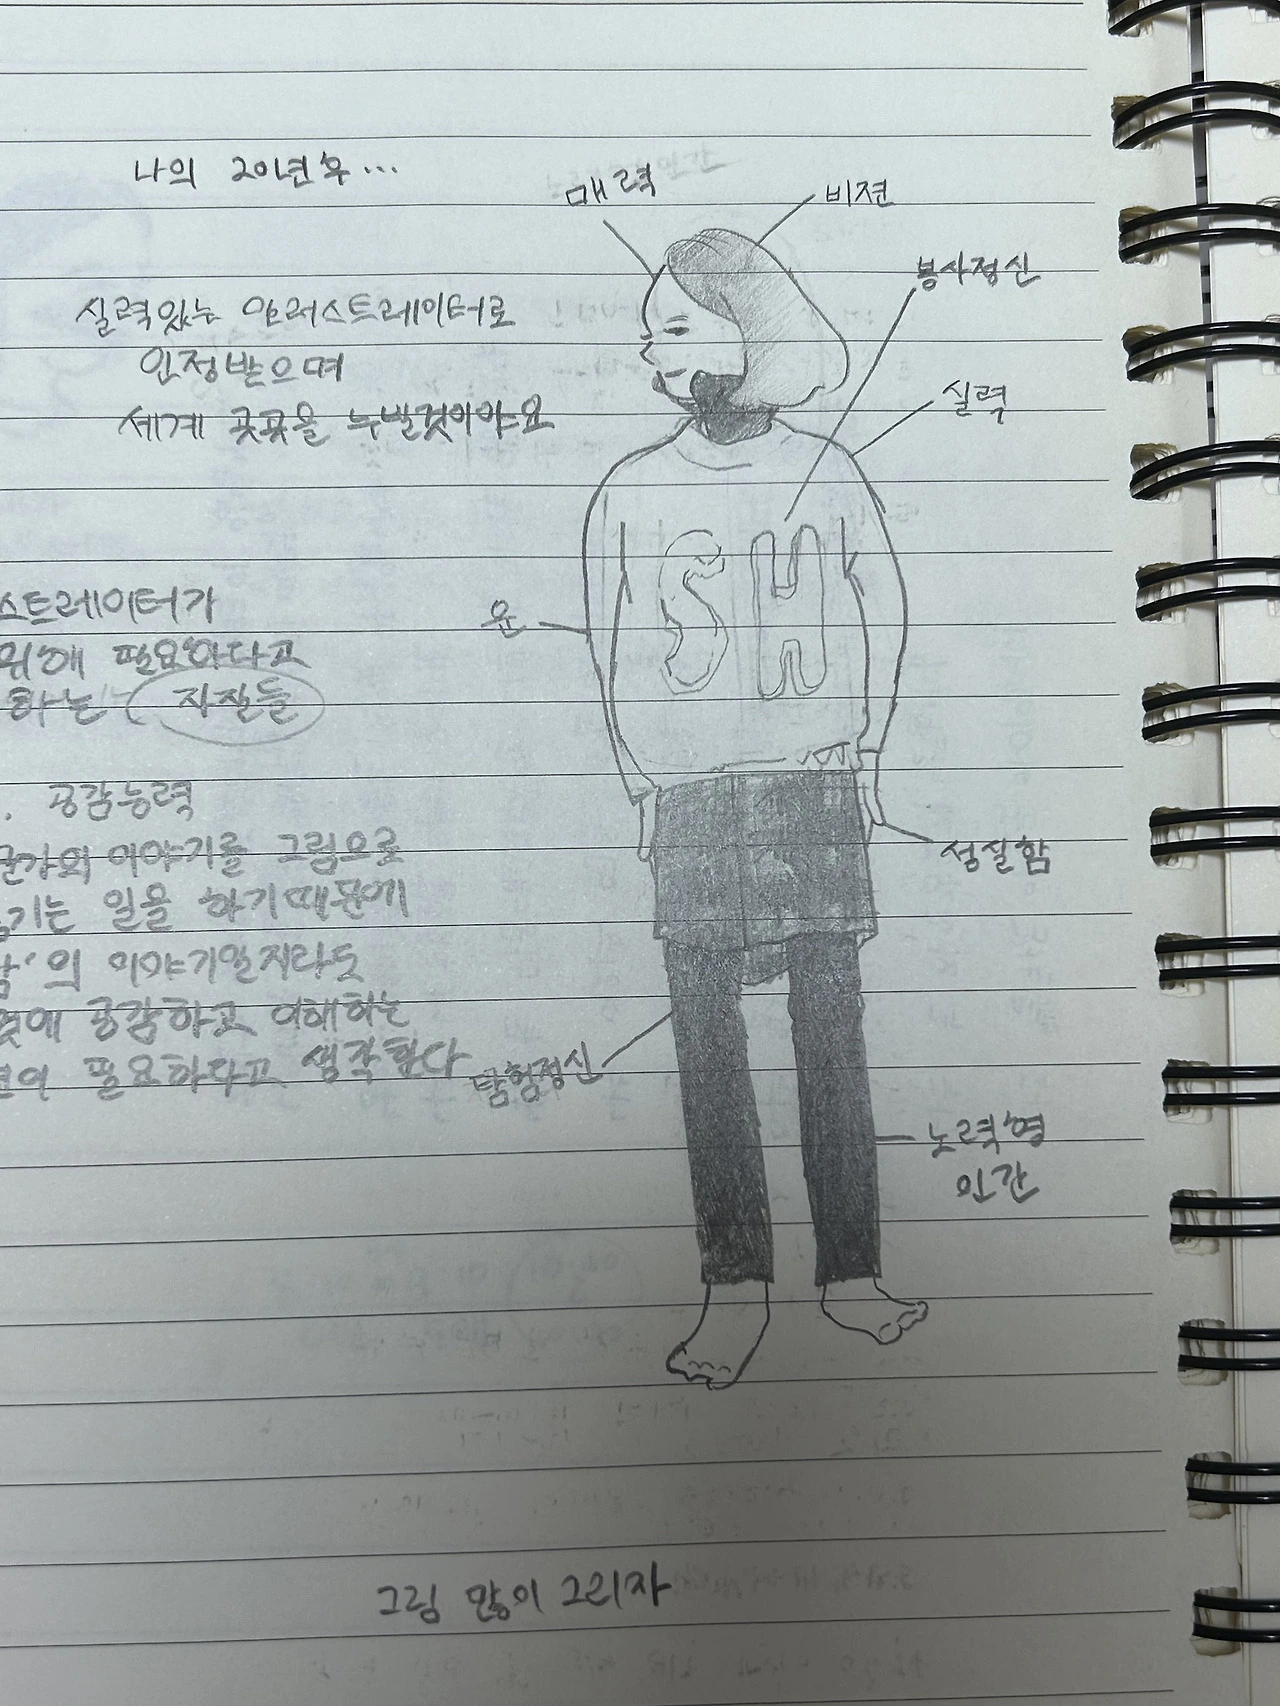 나의 20년후...
매력
비젼
봉사정신
실력있는 일러스트레이터로
인정받으며
세계 곳곳을 누빌것이야요
실력
SH
운
스트레이터가
위해 필요하다고
하는 자질들
공감능력
이야기를 그림으로
기는 일을 하기때문에
의 이야기일지라도
공감하고 이해하는
필요하다고 생각한다
성실함
탐험정신
노력형
인간
그림 많이 그리자